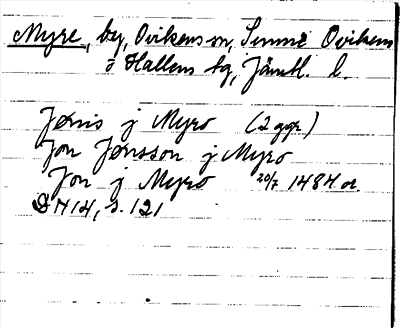 Myre, by, Ovikens sn, Sunne Ovikens
o Hallens tg, Jämtl. l.
Jönis j Myro (2 ggr)
Jon Jönsson j Myro
Jon j Myro 20/7 1484 or.
DN 14, s. 121